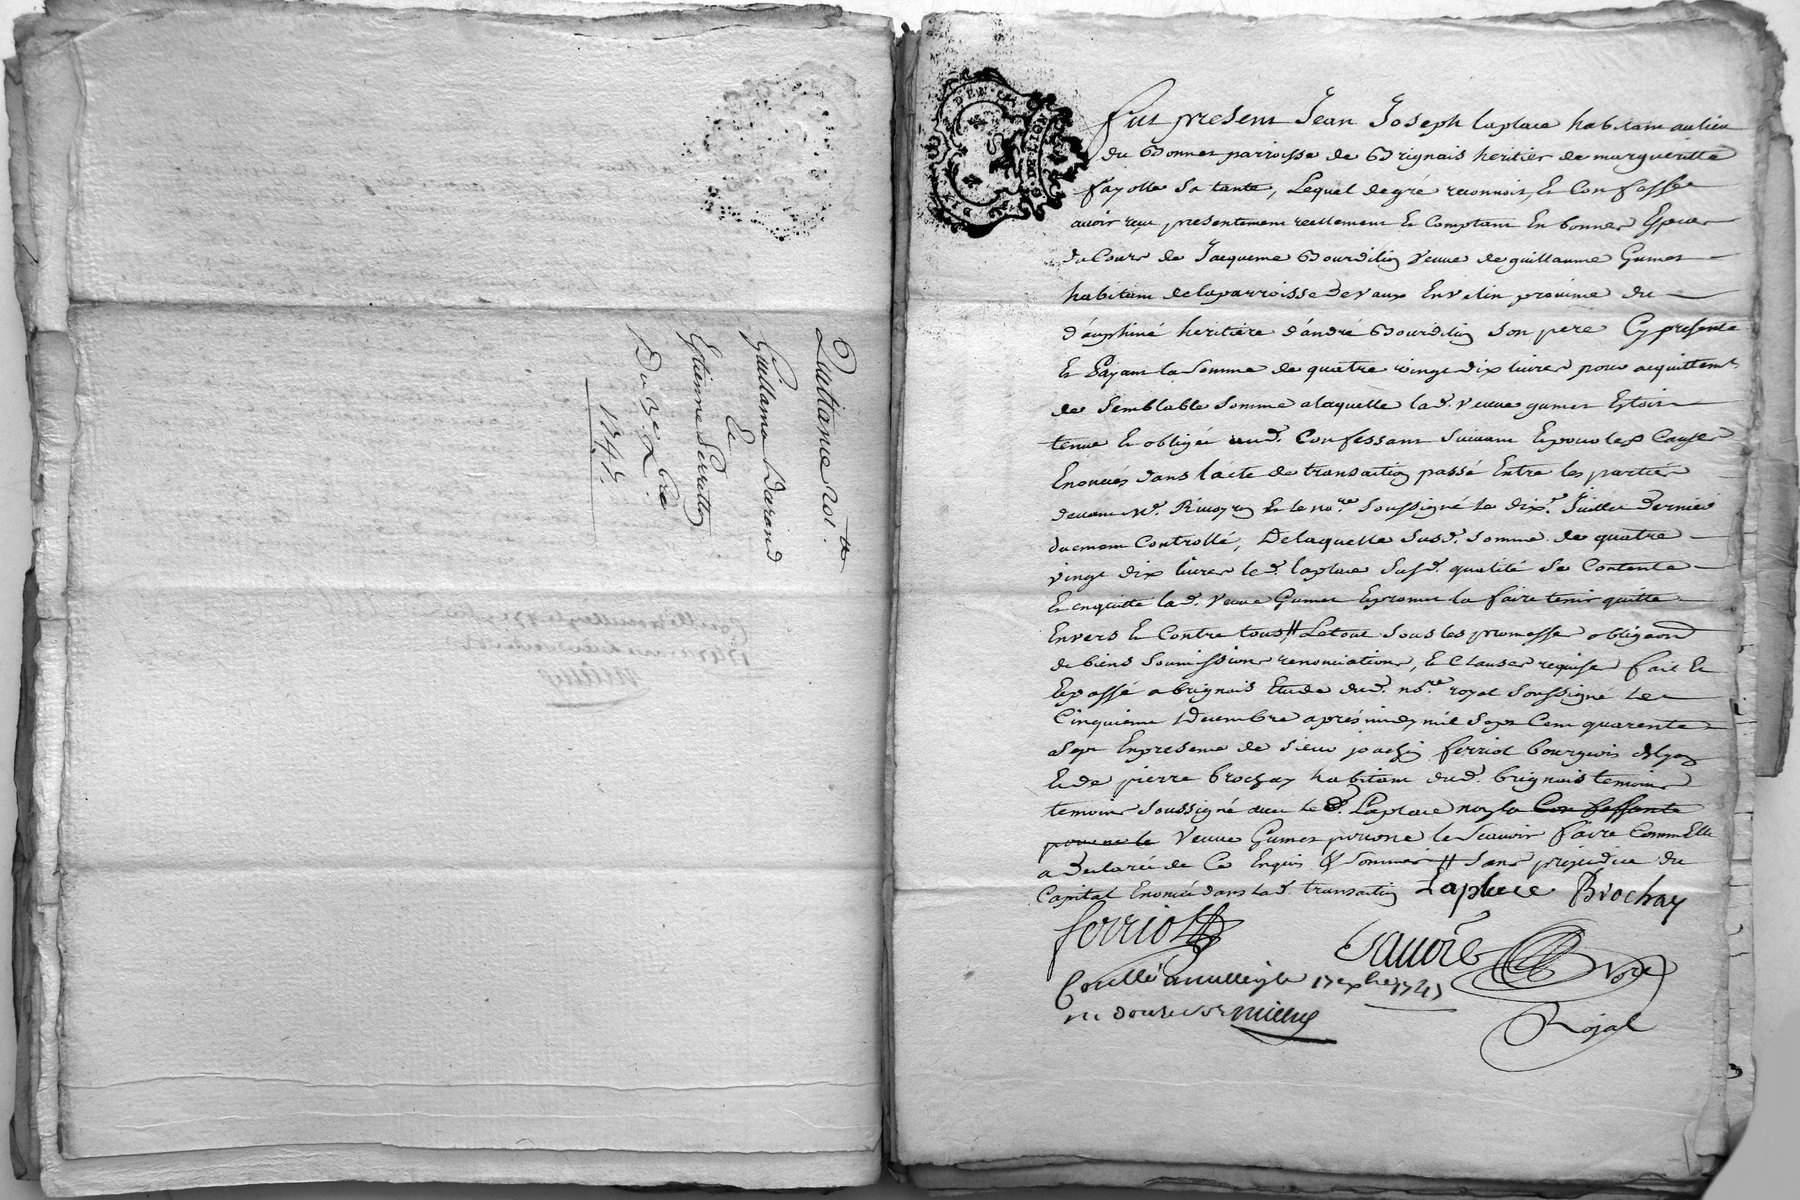 Quittance 201.tt
Guillaume Durand
Et
Etienne Perratton
Du 3e xbre
1747.
DIX DEN.
G. DE LYON
Fut present Jean Joseph Laplace habitant au lieu
du Bonnet parroisse de Brignais heritier de margueritte
fayolle sa tante, Lequel de gré reconnoit, Et Confesse
avoir reçu presentement reellement Et Comptant En bonnes Especes
du Cours de Jacqueme Bourdilin Veuve de guillaume Gumet
habitant de la parroisse de vaux En velin province du
d'auphiné heritiere d'andré Bourdilin son pere Cy presente
Et Payant la Somme de quatre vingt dix livres pour acquittemt
de Semblable Somme a laquelle lad. Veuve gumet Estoit
tenue Et obligée aud. Confessant Suivant Et pour les Causes
Enoncées dans l'acte de transaction passé Entre les parties
devant Me. Et le nore. Soussigné le dix. Juillet dernier
duement Controllé, De laquelle Susd. Somme de quatre
vingt dix livres led. laplace Susd. qualité Se Contente
Et enquitte lad. Veuve Gumet Et promet la faire tenir quitte
Envers Et Contre tous, Le tout Sous les promesses obligaon
de biens Soumissions renonciations, Et Clauses requises fait Et
Et passé a brignais Etude dud. nore. royal Soussigné le
Cinquieme Decembre après midy mil Sept Cent quarente
Sept En presence de Sieur joachin ferriol bourgeois de lyon
Et de pierre brochay habitant dud. brignais temoins
temoins Soussigné avec led. Laplace non la Confessante
pour ne le Veuve Gumet pour ne le Scavoir faire Comm'Elle
a declarée de Ce Enquis & Sommée // Sans prejudice du
Capital Enoncé dans lad. transaction Laplace Brochay
ferriol
Nore
Royal
Conllé a le 17e xbre 1747
douze sols